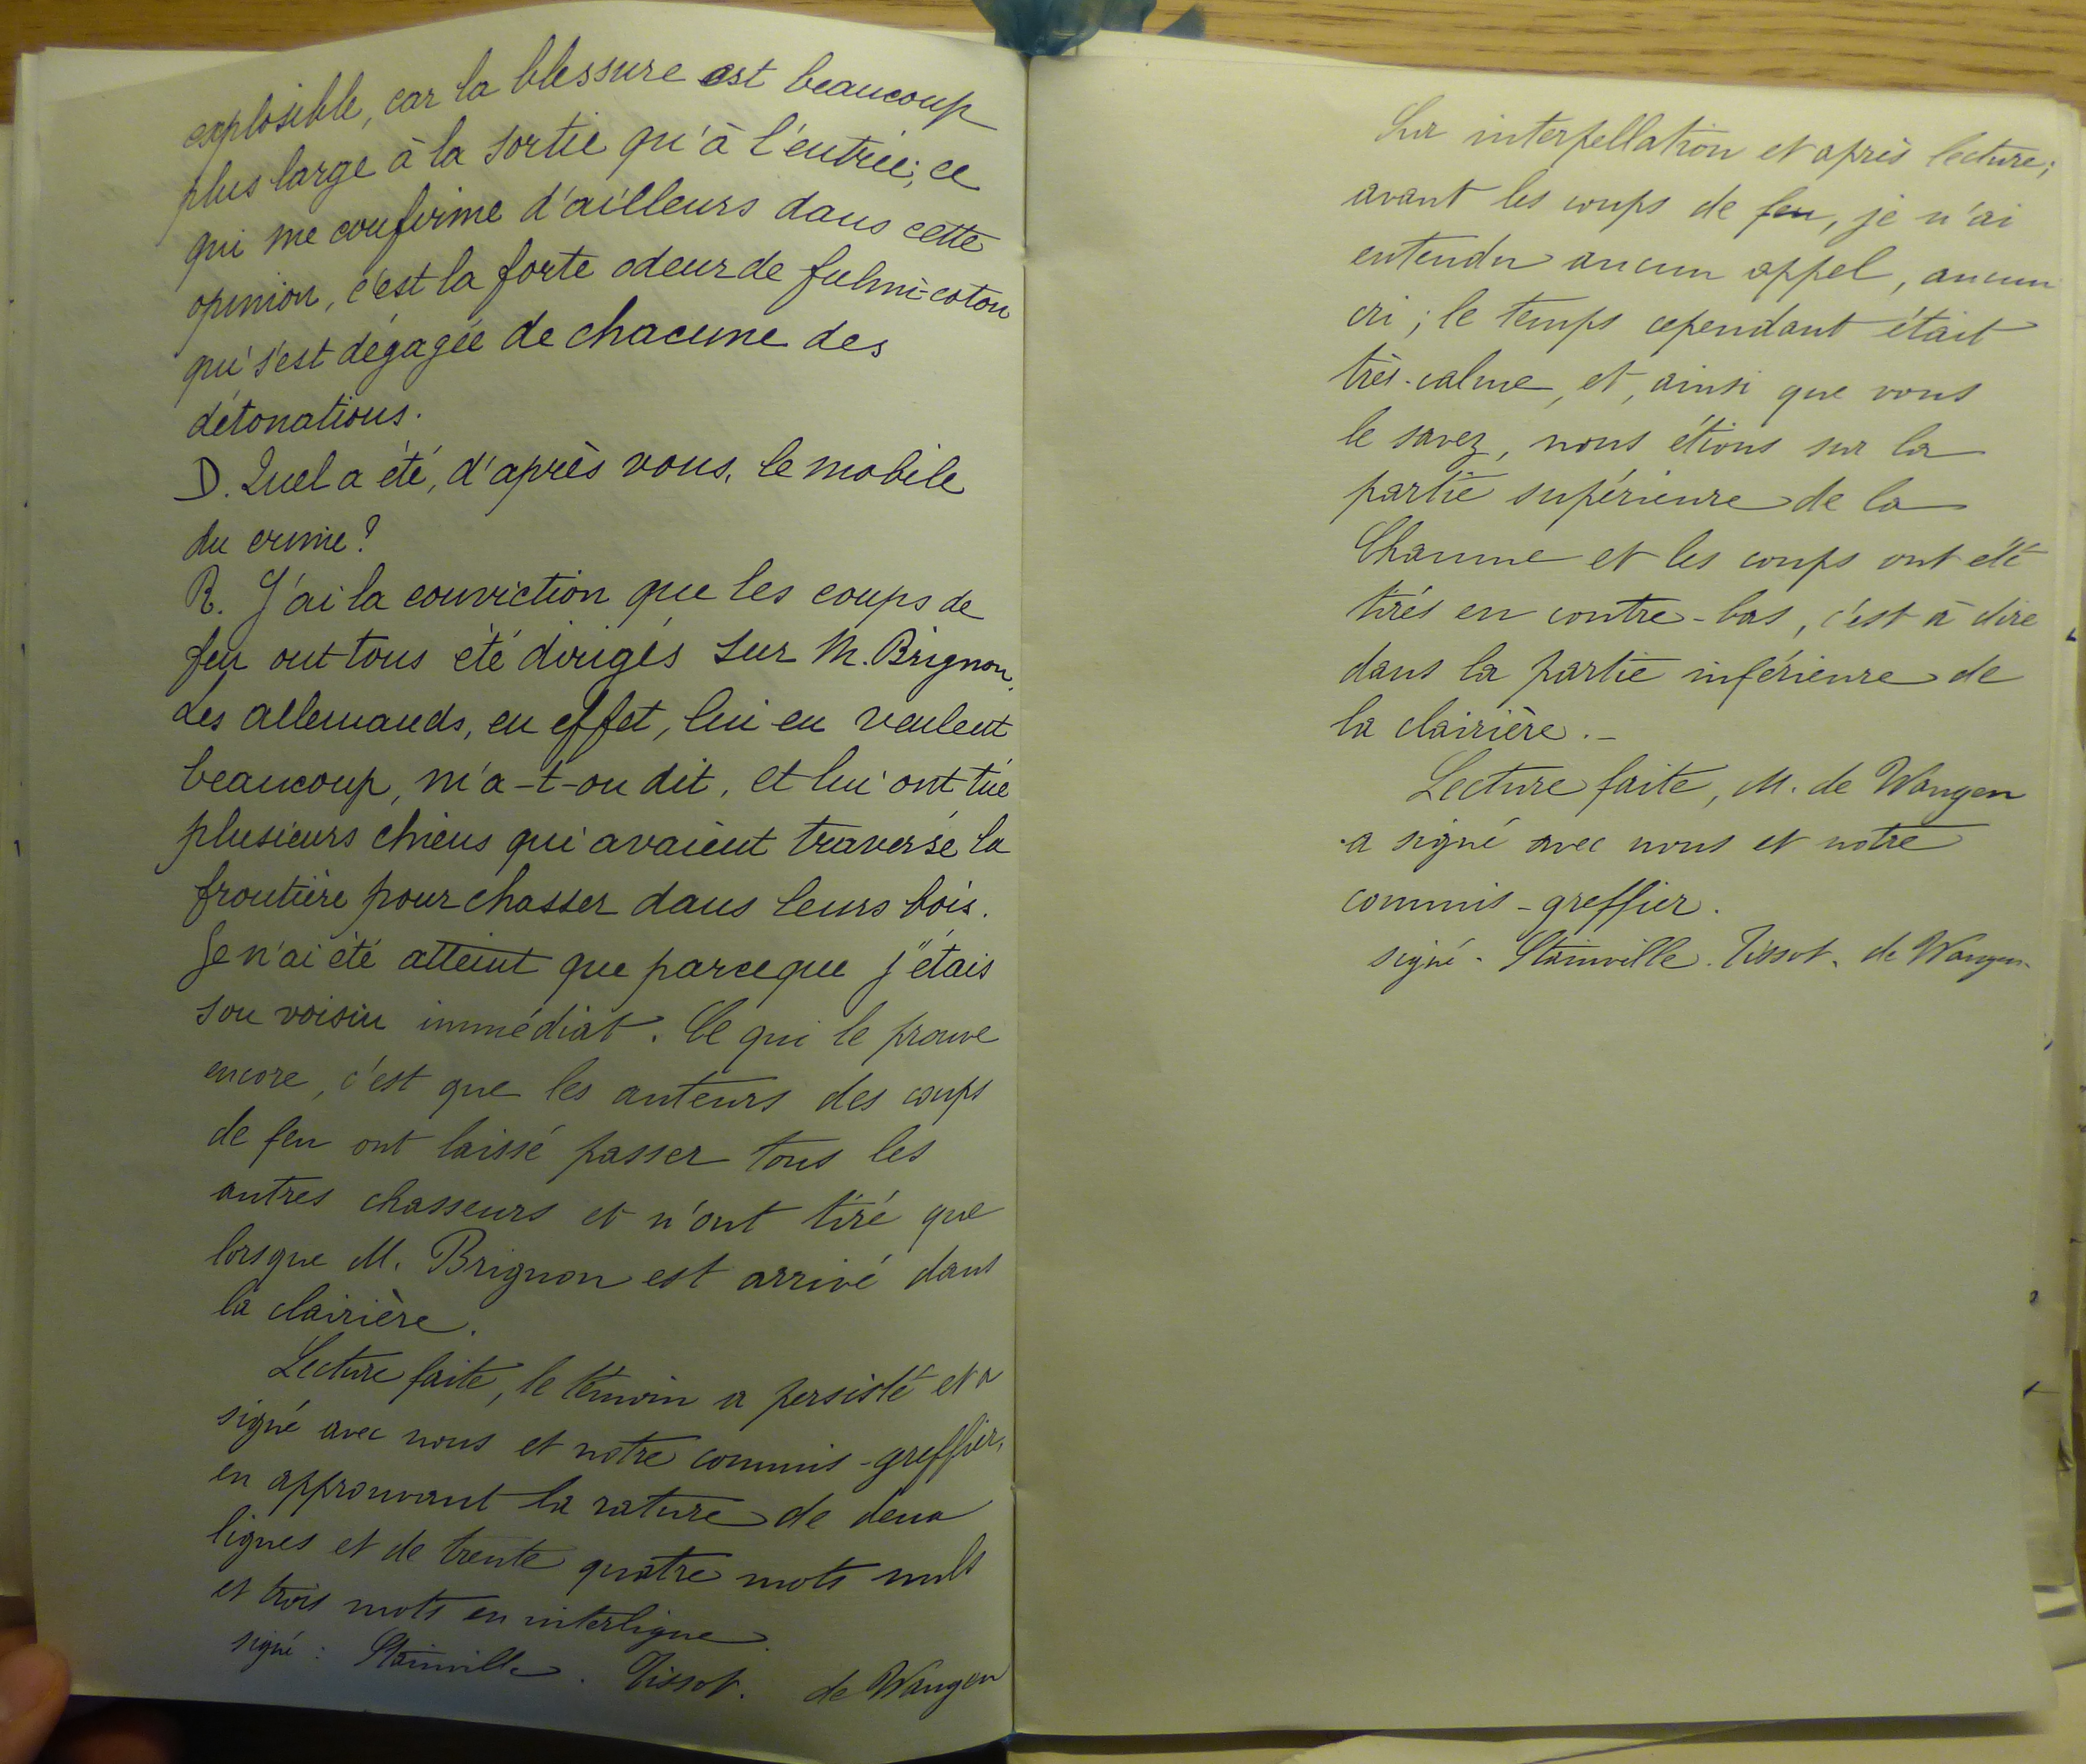 explosible, car la blessure est beaucoup
plus large à la sortie qu'à l'entrée; ce
qui me confirme d'ailleurs dans cette
opinion, c'est la forte odeur de fulmi-coton
qui s'est dégagée de chacune des
détonations.
D. Quel a été, d'après vous, le mobile
du crime?
R. J'ai la conviction que les coups de
feu ont tous été dirigés sur M. Brignon.
Les allemands, en effet, lui en veulent
beaucoup, m'a-t-on dit, et lui ont tué
plusieurs chiens qui avaient traversé la
frontière pour chasser dans leurs bois.
Je n'ai été atteint que parceque j'étais
son voisin immédiat. Ce qui le prouve
encore, c'est que les auteurs des coups
de feu ont laissé passer tous les
autres chasseurs et n'ont tiré que
lorsque M. Brignon est arrivé dans
la clairière.
Lecture faite, le témoin a persisté et a
signé avec nous et notre commis-greffier,
en approuvant la rature de deux
lignes et de trente quatre mots nuls
et trois mots en interligne.
signé : Stainville. Tissot. de Wangen
Sur interpellation et après lecture;
avant les coups de feu, je n'ai
entendu aucun appel, aucun
cri; le temps cependant était
très-calme, et, ainsi que vous
le savez, nous étions sur la
partie supérieure de la
Chaume et les coups ont été
tirés en contre-bas, c'est à dire
dans la partie inférieure de
la clairière.-
Lecture faite, M. de Wangen
a signé avec nous et notre
commis-greffier.
signé - Stainville. Tissot. de Wangen.